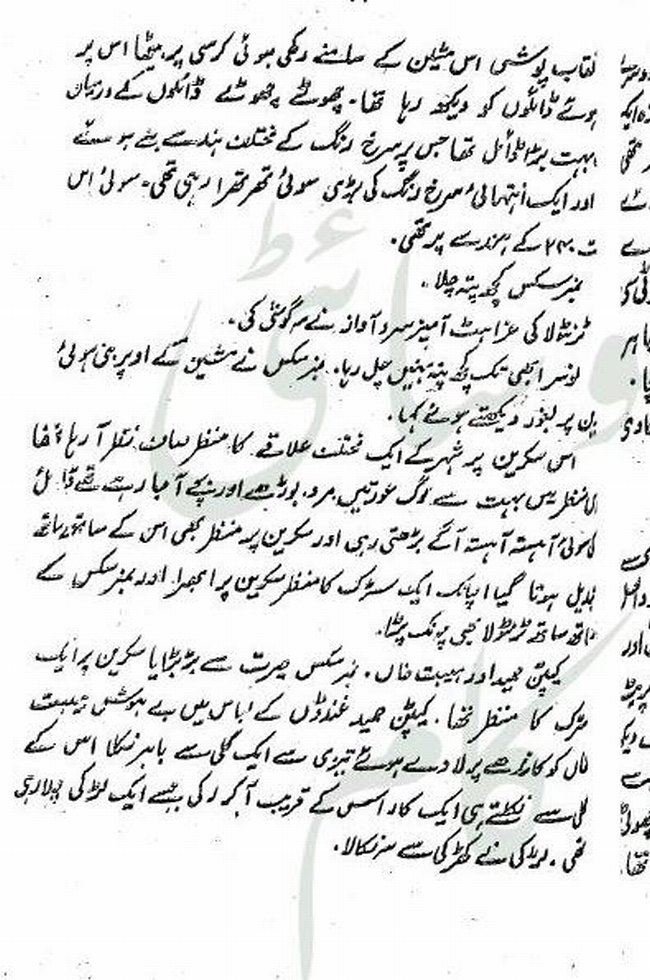 نقاب پوش اس مشین کے سامنے رکھی ہوئی کرسی پر بیٹھا اس پر
ہوئے ڈائلوں کو دیکھ رہا تھا۔ چھوٹے چھوٹے ڈائلوں کے درمیان
بہت بڑا ڈائل تھا جس پر سرخ رنگ کے مختلف ہندسے بنے ہوئے
اور ایک انتہائی سرخ رنگ کی بڑی سوئی تھرتھرا رہی تھی۔ سوئی اس
ت ۲۴۰ کے ہندسے پر تھی۔
نمبر سکس کچھ پتہ چلا۔
ٹرنٹولا کی غراہٹ آمیز سرد آواز نے سرگوشی کی۔
نوسر ابھی تک کچھ پتہ نہیں چل رہا۔ نمبر سکس نے مشین کے اوپر بنی ہوئی
ین پر بغور دیکھتے ہوئے کہا۔
اس سکرین پر شہر کے ایک مختلف علاقے کا منظر صاف نظر آ رہا تھا
منظر میں بہت سے لوگ عورتیں مرد، بوڑھے اور بچے آ جا رہے تھے ڈائل
سوئی آہستہ آہستہ آگے بڑھتی رہی اور سکرین پر منظر بھی اس کے ساتھ ساتھ
تبدیل ہوتا گیا اچانک ایک سڑک کا منظر سکرین پر ابھرا اور نمبر سکس کے
ساتھ ساتھ ٹرنٹولا بھی چونک پڑا۔
کیپٹن حمید اور ہیبت خاں۔ نمبر سکس حیرت سے بڑبڑایا سکرین پر ایک
سڑک کا منظر تھا۔ کیپٹن حمید غنڈوں کے لباس میں بے ہوش ہیبت
خاں کو کاندھے پر لادے ہوئے تیزی سے ایک گلی سے باہر نکلا اس کے
گلی سے نکلتے ہی ایک کار اس کے قریب آ کر رکی جسے ایک لڑکی چلا رہی
تھی۔ لڑکی نے کھڑکی سے سر نکالا۔